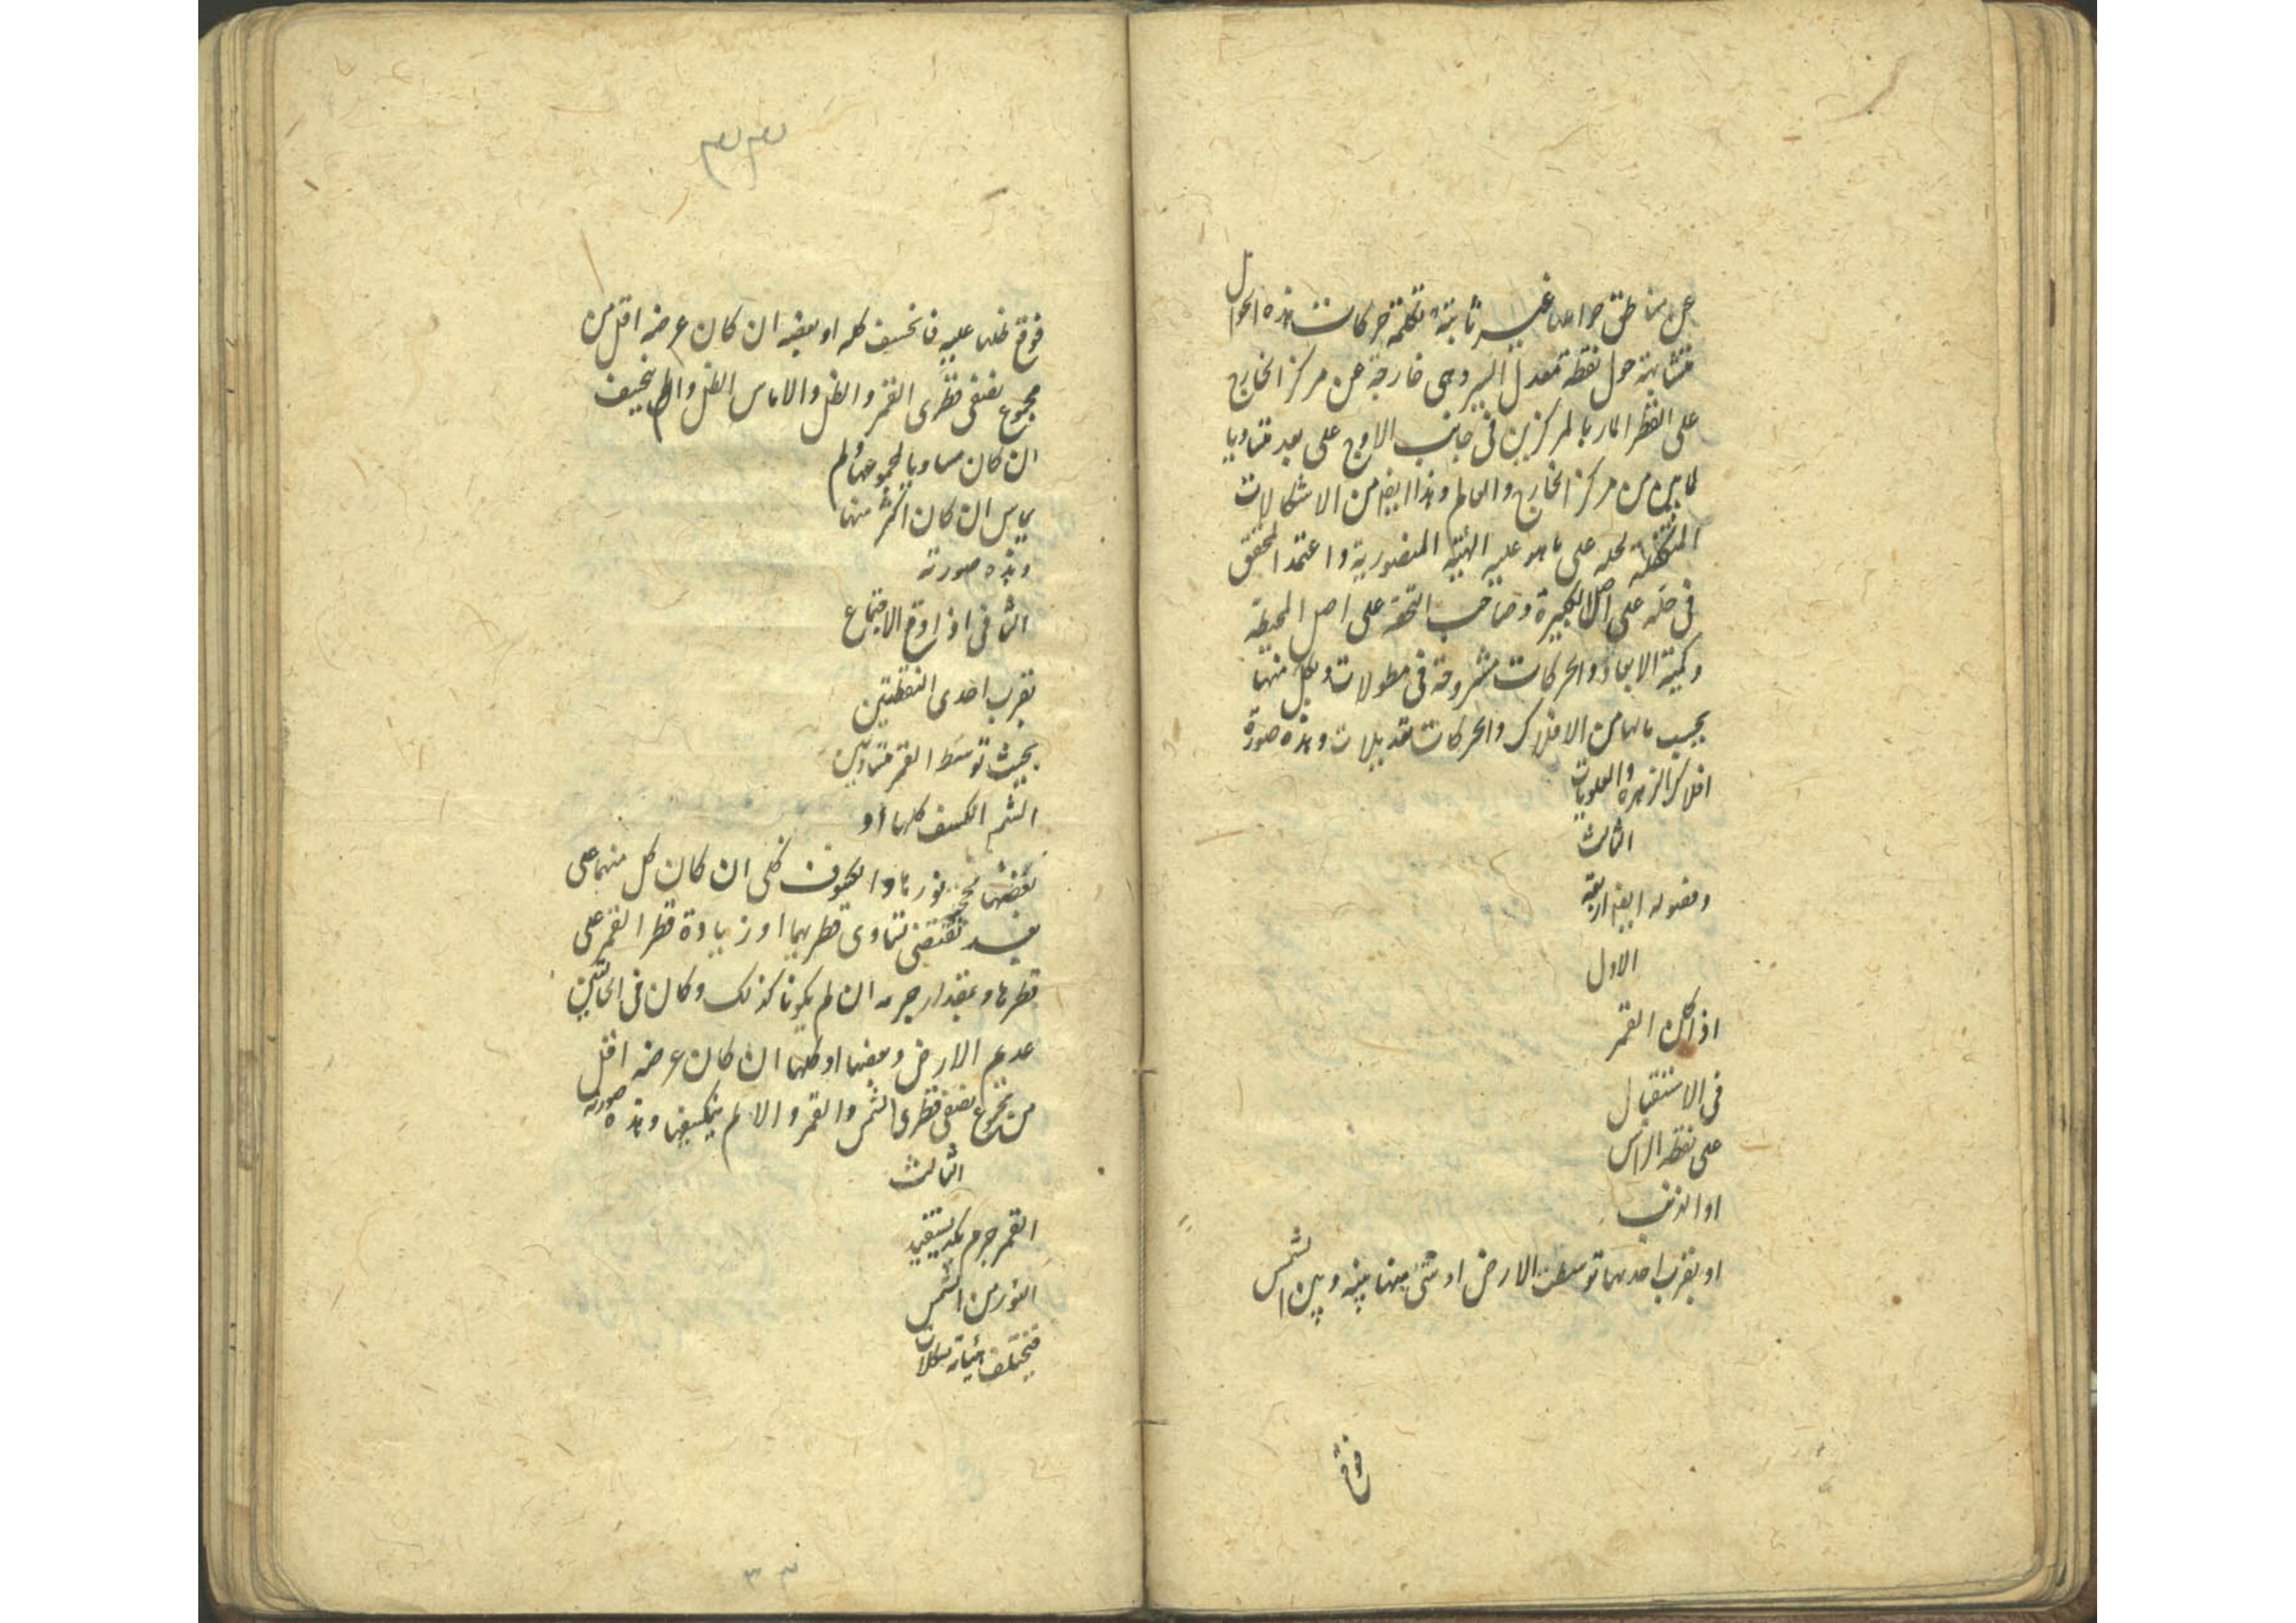 عن مناطق حواملها غير ثابتة تكملة حركات هذه الحوامل
متشابهة حول نقطة معدل المسير وهي خارجة عن مركز الخارج
على القطر المار بالمركزين في جانب الاوج على بعد متساويا
لما بين من مركز الخارج والعالم وهذا ايضا من الاشكالات
لحله على ما هو عليه الهيئة المنصورية واعتمد المحقق
في حله على اصل الكبيرة وصاحب التحفة على اصل المحيطة
وكمية الابعاد والحركات مشروحة في مطولات ولكل منها
بحسب مالها من الافلاك والحركات تعديلات وهذه صورة
افلاك الزهرة والعلويات
الثالث
وفصوله ايضا اربعة
الاول
اذا كان القمر
في الاستقبال
على نقطة الراس
او الذنب
او بقرب احدهما توسطت الارض او شئ منها بينه وبين الشمس
فوقع
۳۳
فوقع ظلها عليه فانخسف كله او بعضه ان كان عرضه اقل من
مجموع نصفي قطري القمر والظل والا ماس الظل ولم ينخسف
ان كان مساويا لمجموعهما ولم
يماس ان كان اكثر منها
وهذه صورته
الثاني اذا وقع الاجتماع
بقرب احدى النقطتين
بحيث توسط القمر متساويتين
الشمس انكسف كلها او
بعضها نورها والكسوف كلي ان كان كل منهما على
بعد تقتضي تساوي قطريهما او زيادة قطر القمر على
قطرها وبمقدار جرمه ان لم يكونا كذلك وكان في الحالتين
عديم الارض وبعضها او كلها ان كان عرضه اقل
من مجموع نصفي قطري الشمس والقمر والا لم ينكسف وهذه صورته
الثالث
القمر جرم كمد يستفيد
النور من الشمس
فيختلف هيئاته
۳۳